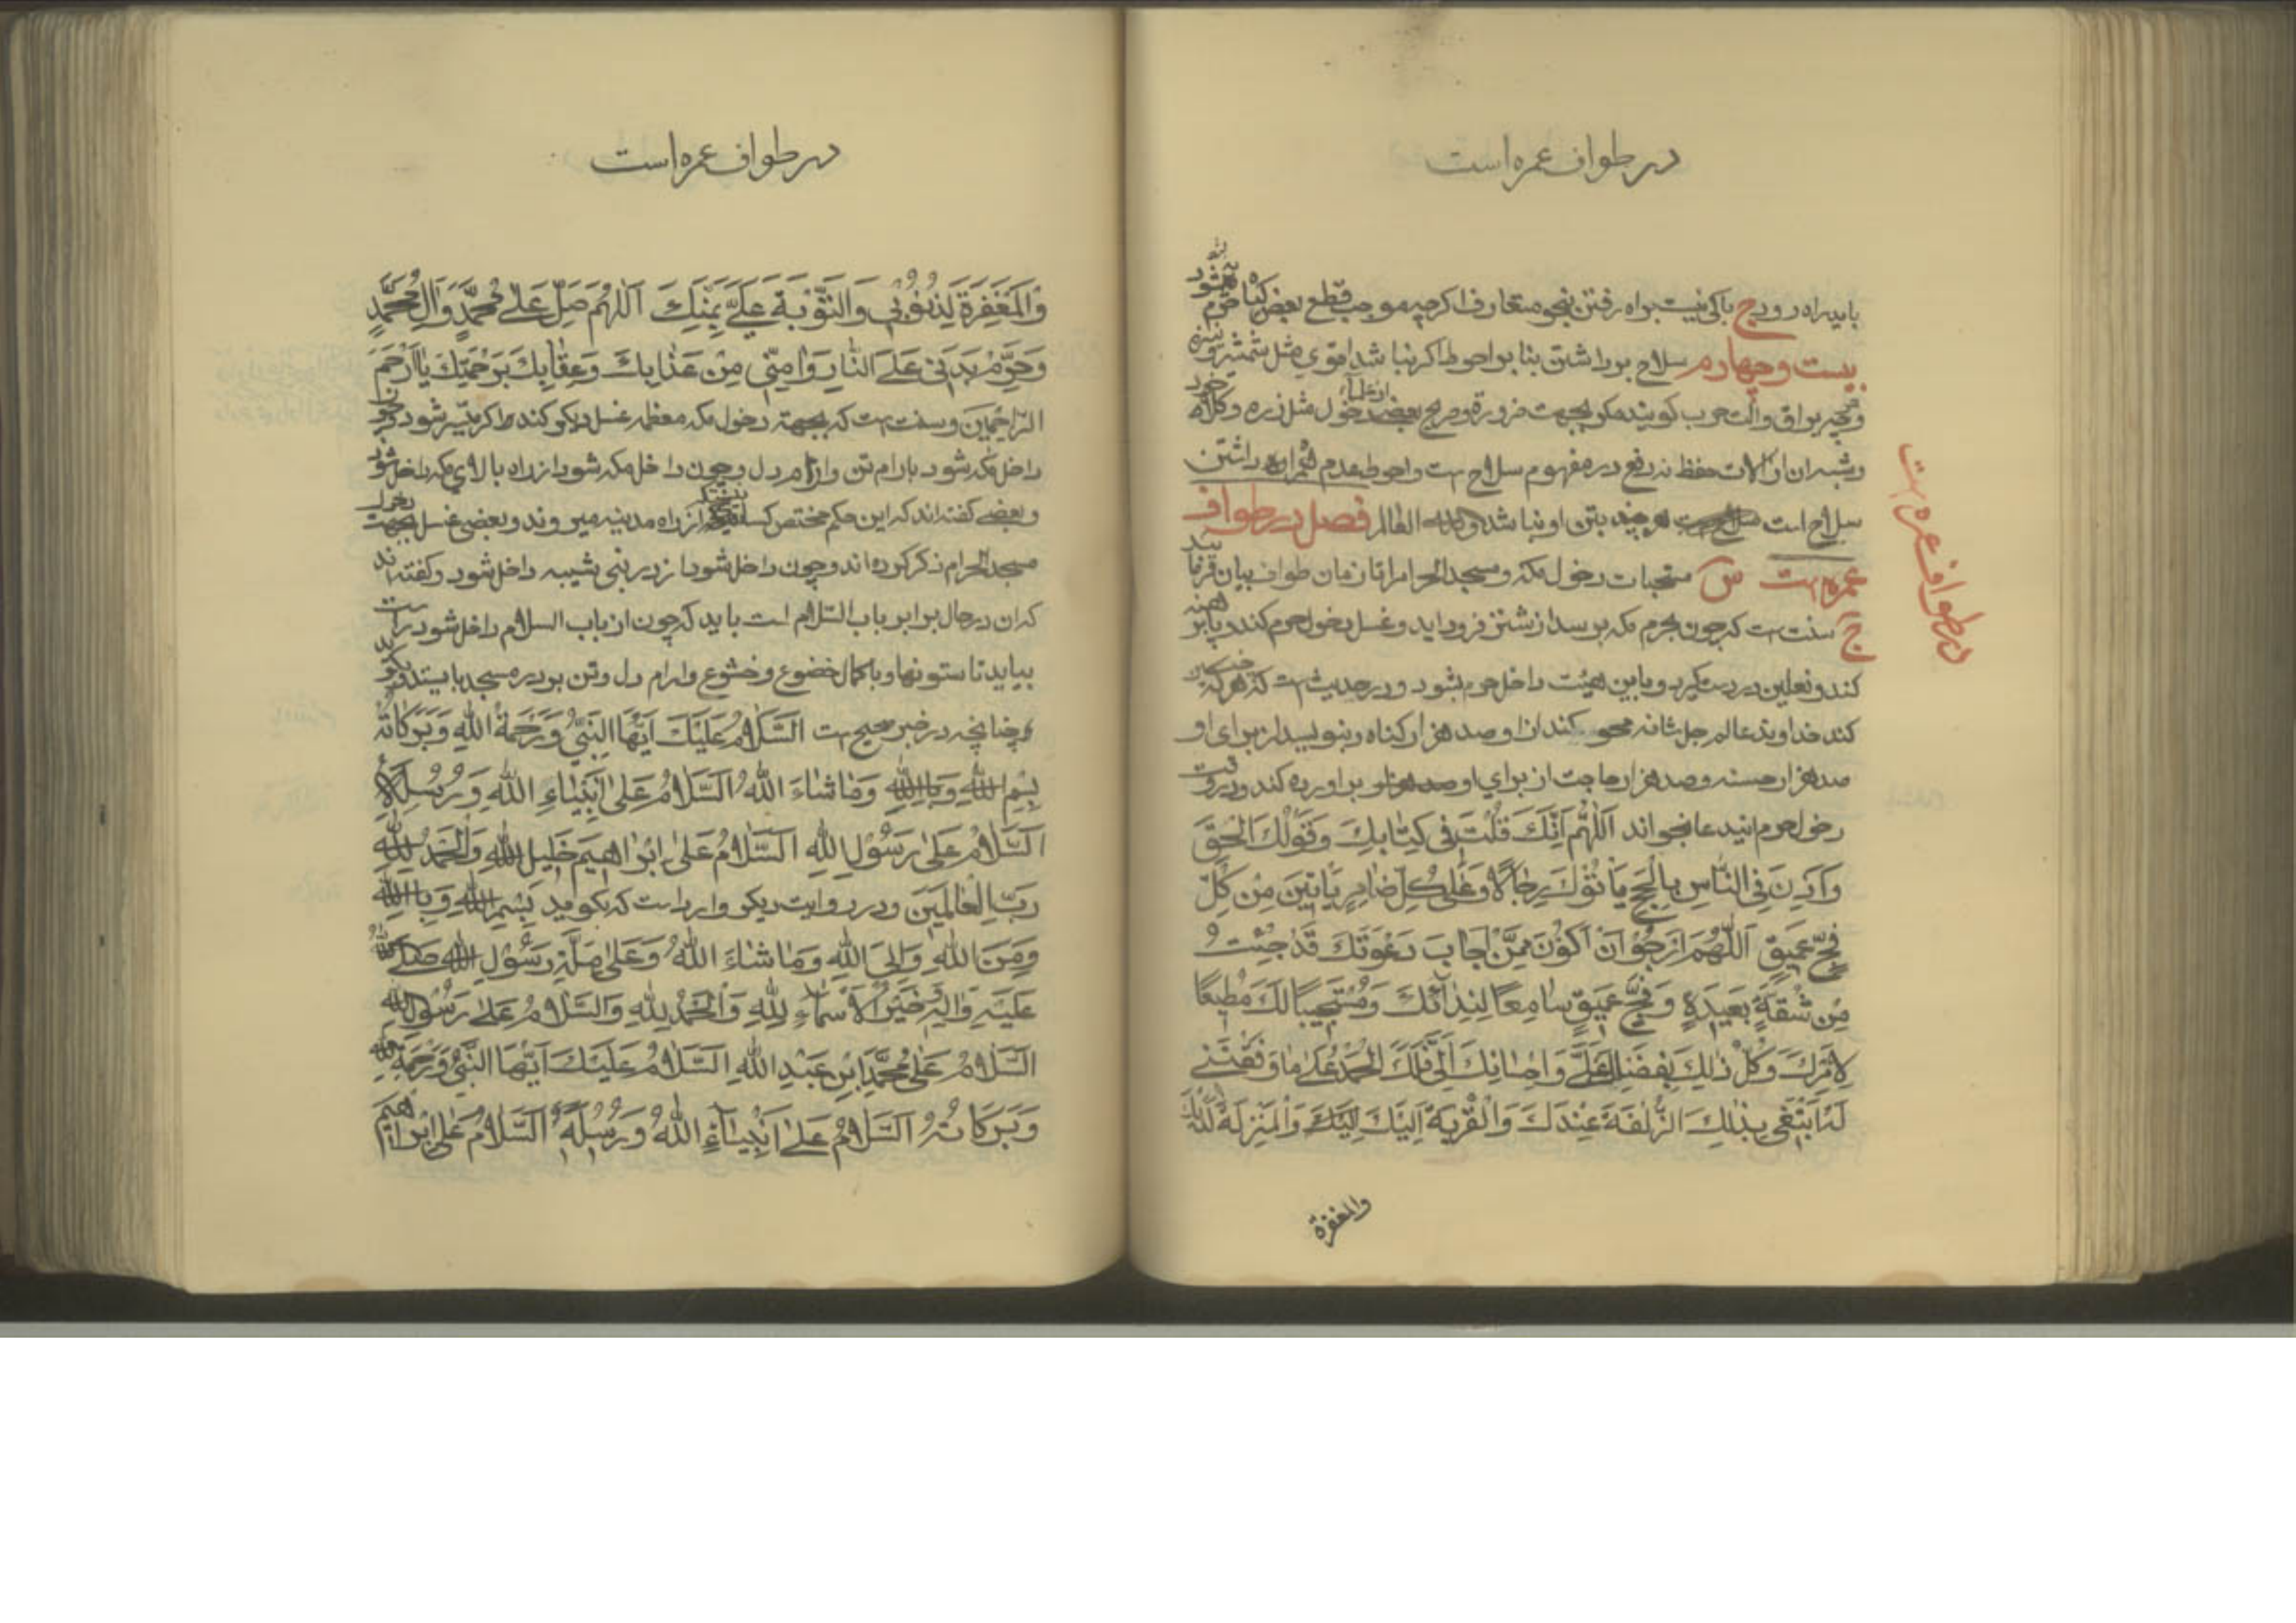 در طواف عمره است
باید راه رود ج باکی نیست براه رفتن بنحو متعارف اکرچه موجب قطع بعض کیاه حرم بشود
بیست و چهارم سلاح برداشتن بنا بر احوط اکر نباشد اقوی مثل شمشیر و نیزه
والت حرب کویند مکر بجهت ضرورة و صریح بعضی از علماء دخول مثل زره و کلاه خود
و شبه ان از الات حفظ نه دفع در مفهوم سلاح است و احوط عدم همراه داشتن
سلاح است هر چند بتن او نباشد والله العالم فصل در طواف
عمره است س مستحبات دخول مکه و مسجد الحرام را تا زمان طواف بیان فرمایید
ج سنت است که چون بحرم مکه برسد از شتر فرود اید و غسل دخول حرم کند و پا برهنه
کند و نعلین در دست کیرد و باین هیئت داخل حرم بشود و در حدیث است که هر که چنین
کند خداوند عالم جل شانه محو کند از او صد هزار کناه و بنویسد از برای او
صد هزار حسنه و صد هزار حاجت از برای او براورده کند و در وقت
دخول حرم این دعا بخواند اَللّهُمَّ اِنَّكَ قُلْتَ فی كِتٰابِكَ وَ قَوْلُكَ الْحَقّ
وَ اَذِّنْ فِی النّٰاسِ بِالْحَجِّ يَاْتُوْكَ رِجٰالًا وَعَلٰی كُلِّ ضٰامِرٍ يَاْتِينَ مِنْ كُلِّ
فَجٍّ عَميقٍ اَللّهُمَّ اَرْجُوْ اَنْ اَكُوْنَ مِمَّنْ اَجٰابَ دَعْوَتَكَ قَدْ جِئْتُ
مِنْ شُقَّةٍ بَعيدَةٍ وَ فَجٍّ عَميقٍ سٰامِعًا لِنِدٰائِكَ وَ مُسْتَجيبًا لَكَ مُطيعًا
لِاَمْرِكَ وَ كُلُّ ذٰلِكَ بِفَضْلِكَ عَلَیَّ وَ اِحْسٰانِكَ اِلَیَّ فَلَكَ الْحَمْدُ عَلٰی مٰا وَفَّقْتَنی
لَهُ اَبْتَغی بِذٰلِكَ الزُّلْفَةَ عِنْدَكَ وَ الْقُرْبَةَ اِلَيْكَ وَ الْمَنْزِلَةَ لَدَيْكَ
والمغفرة
در طواف عمره است
در طواف عمره است
وَ الْمَغْفِرَةَ لِذُنُوْبی وَ التَّوْبَةَ عَلَیَّ بِمَنِّكَ اَللّهُمَّ صَلِّ عَلٰی مُحَمَّدٍ وَ اٰلِ مُحَمَّدٍ
وَ حَرِّمْ بَدَنی عَلَی النّٰارِ وَ اٰمِنّی مِنْ عَذٰابِكَ وَ عِقٰابِكَ بِرَحْمَتِكَ يٰا اَرْحَمَ
الرّٰاحِمينَ و سنت است که بجهة دخول مکه معظمه غسل دیکر کند اکر میسر شود
داخل مکه شود بارام تن و ارام دل و چون داخل مکه شود از راه بالای مکه داخل شود
و بعضی کفته اند که این حکم مختص از راه مدینه میروند و بعضی غسل بجهت دخول
مسجد الحرام ذکر کرده اند و چون داخل شود از در بنی شیبه داخل شود و کفته اند
که ان در حال برابر باب السلام است باید که چون از باب السلام داخل شود راست
بیاید تا ستونها و با کمال خضوع و خشوع و ارام دل و تن بر در مسجد بایستد و بکوید
چنانچه در خبر صحیح است اَلسَّلٰامُ عَلَيْكَ اَيُّهَا النَّبِیُّ وَ رَحْمَةُ اللهِ وَ بَرَكٰاتُهُ
بِسْمِ اللهِ وَ بِاللهِ وَ مٰا شٰاءَ اللهُ اَلسَّلٰامُ عَلٰی اَنْبِيٰاءِ اللهِ وَ رُسُلِهِ
اَلسَّلٰامُ عَلٰی رَسُوْلِ اللهِ اَلسَّلٰامُ عَلٰی اِبْرٰاهيمَ خَليلِ اللهِ وَ الْحَمْدُ لِلّٰهِ
رَبِّ الْعٰالَمينَ و در روایت دیکر وارد است که بکوید بِسْمِ اللهِ وَ بِاللهِ
وَ مِنَ اللهِ وَ اِلَی اللهِ وَ مٰا شٰاءَ اللهُ وَ عَلٰی مِلَّةِ رَسُوْلِ اللهِ صَلَّی اللهُ
عَلَيْهِ وَ اٰلِهِ وَ خَيْرُ الْاَسْمٰاءِ لِلّٰهِ وَ الْحَمْدُ لِلّٰهِ وَ السَّلٰامُ عَلٰی رَسُوْلِ اللهِ
اَلسَّلٰامُ عَلٰی مُحَمَّدِ ابْنِ عَبْدِ اللهِ اَلسَّلٰامُ عَلَيْكَ اَيُّهَا النَّبِیُّ وَ رَحْمَةُ اللهِ
وَ بَرَكٰاتُهُ اَلسَّلٰامُ عَلٰی اَنْبِيٰاءِ اللهِ وَ رُسُلِهِ اَلسَّلٰامُ عَلٰی اِبْرٰاهيمَ